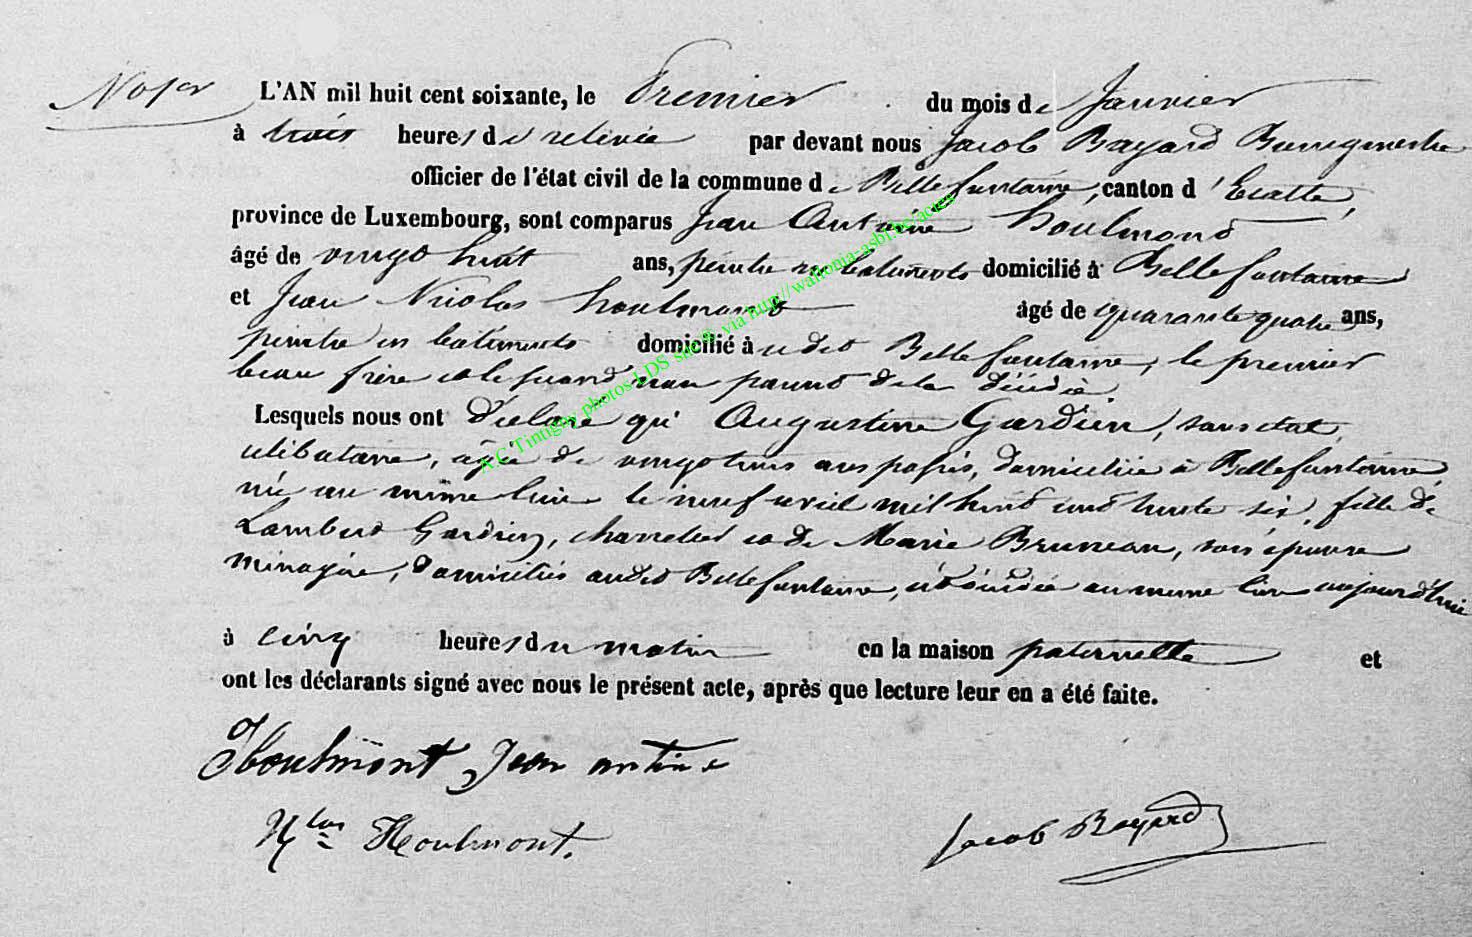 L'AN mil huit cent soixante, le Premier du mois de Janvier
à trois heures de relevée par devant nous Jacob Bayard Bourgmestre
officier de l'état civil de la commune de Bellefontaine, canton d'Etalle,
province de Luxembourg, sont comparus Jean Antoine houlmont
âgé de vingt huit ans, peintre en batiments domicilié à Bellefontaine
et Jean Nicolas houlmont âgé de quarante quatre ans,
peintre en batiments domicilié à udit Bellefontaine, le premier
beau frère et le second non parent de la décédée.
Lesquels nous ont déclaré qu'Augustine Gardien, sans état,
célibataire, âgée de vingt trois ans passés, domiciliée à Bellefontaine,
née au même lieu le neuf avril mil huit cent trente six, fille de
Lambert Gardien, et de Marie Bruneau, son épouse
ménagère, domiciliés audit Bellefontaine, est décédée au même lieu aujourd'hui
à cinq heures du matin en la maison paternelle et
ont les déclarants signé avec nous le présent acte, après que lecture leur en a été faite.
Houlmont Jean antine
Nlas Houlmont.
Jacob Bayard
A.C Tintigny photos LDS site® via http://wallonia-asbl.be/actes